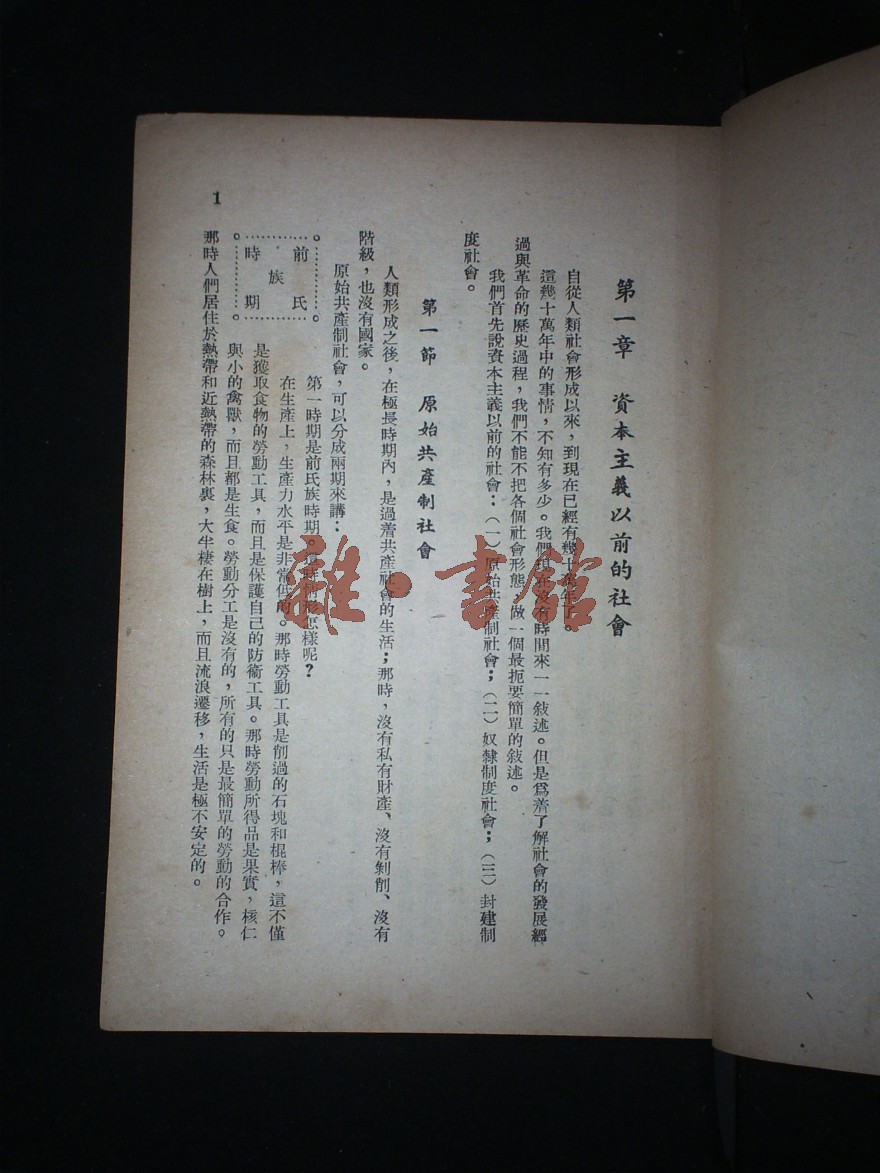 第一章　資本主義以前的社會
自從人類社會形成以來，到現在已經有幾十萬年了。
這幾十萬年中的事情，不知有多少。我們現在沒有時間來一一敍述。但是爲着了解社會的發展經
過與革命的歷史過程，我們不能不把各個社會形態，做一個最扼要簡單的敍述。
我們首先說資本主義以前的社會：（一）原始共產制社會；（二）奴隸制度社會；（三）封建制
度社會。
第一節　原始共產制社會
人類形成之後，在極長時期內，是過着共產社會的生活；那時，沒有私有財產、沒有剝削、沒有
階級，也沒有國家。
原始共產制社會，可以分成兩期來講：
前氏
族
時期
第一時期是前氏族時期。情形怎樣呢？
在生產上，生產力水平是非常低的。那時勞動工具是削過的石塊和棍棒，這不僅
是獲取食物的勞動工具，而且是保護自己的防衞工具。那時勞動所得品是果實，核仁
與小的禽獸，而且都是生食。勞動分工是沒有的，所有的只是最簡單的勞動的合作。
那時人們居住於熱帶和近熱帶的森林裏，大半棲在樹上，而且流浪遷移，生活是極不安定的。
1
雜·書館